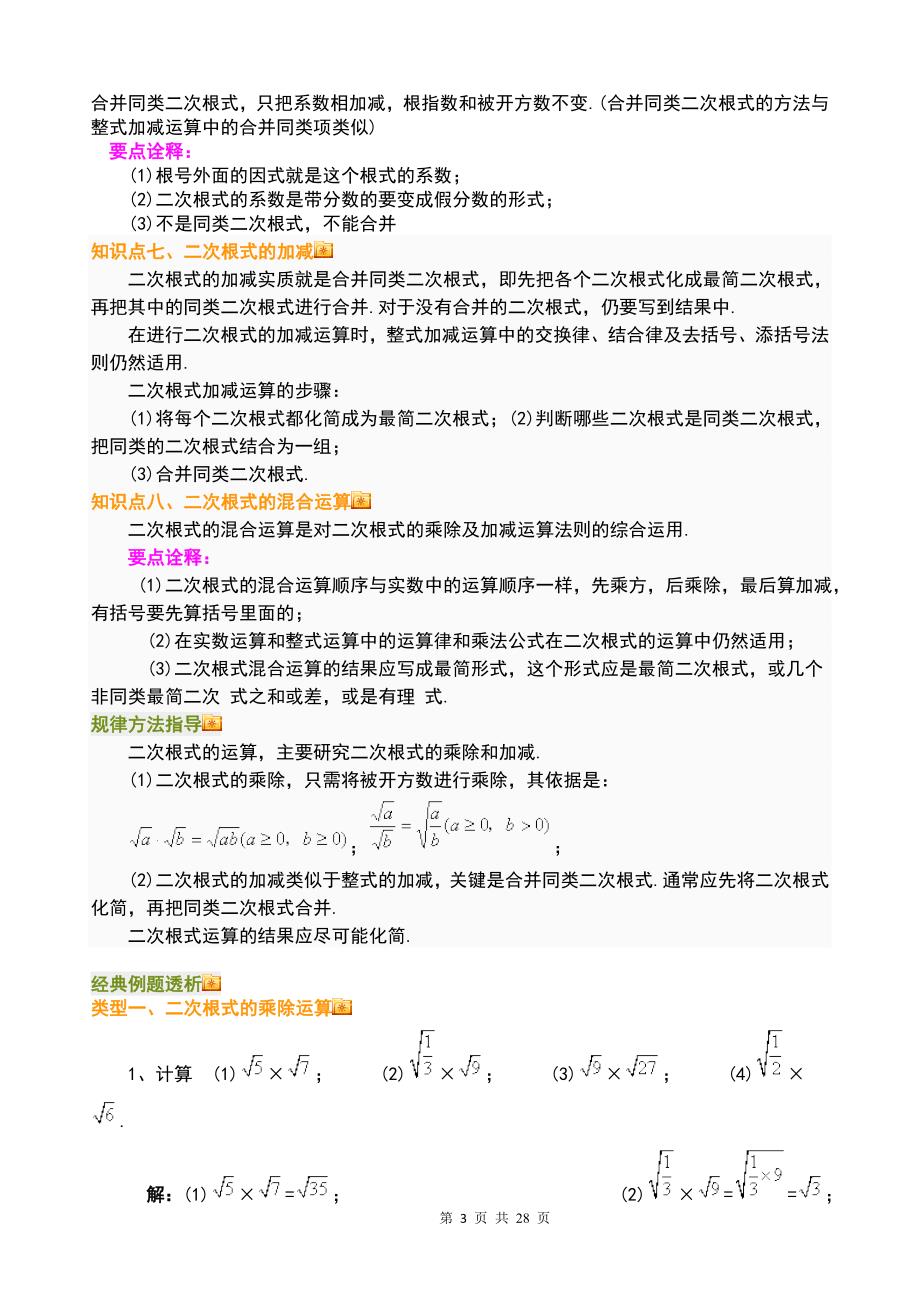 合并同类二次根式，只把系数相加减，根指数和被开方数不变.(合并同类二次根式的方法与
整式加减运算中的合并同类项类似)
要点诠释：
(1)根号外面的因式就是这个根式的系数；
(2)二次根式的系数是带分数的要变成假分数的形式；
(3)不是同类二次根式，不能合并
知识点七、二次根式的加减
二次根式的加减实质就是合并同类二次根式，即先把各个二次根式化成最简二次根式，
再把其中的同类二次根式进行合并.对于没有合并的二次根式，仍要写到结果中.
在进行二次根式的加减运算时，整式加减运算中的交换律、结合律及去括号、添括号法
则仍然适用.
二次根式加减运算的步骤：
(1)将每个二次根式都化简成为最简二次根式；(2)判断哪些二次根式是同类二次根式，
把同类的二次根式结合为一组；
(3)合并同类二次根式.
知识点八、二次根式的混合运算
二次根式的混合运算是对二次根式的乘除及加减运算法则的综合运用.
要点诠释：
(1)二次根式的混合运算顺序与实数中的运算顺序一样，先乘方，后乘除，最后算加减，
有括号要先算括号里面的；
(2)在实数运算和整式运算中的运算律和乘法公式在二次根式的运算中仍然适用；
(3)二次根式混合运算的结果应写成最简形式，这个形式应是最简二次根式，或几个
非同类最简二次 式之和或差，或是有理 式.
规律方法指导
二次根式的运算，主要研究二次根式的乘除和加减.
(1)二次根式的乘除，只需将被开方数进行乘除，其依据是：
√a·√b=√ab(a≥0，b≥0)；√a/√b=√(a/b)(a≥0，b>0)；
(2)二次根式的加减类似于整式的加减，关键是合并同类二次根式.通常应先将二次根式
化简，再把同类二次根式合并.
二次根式运算的结果应尽可能化简.
经典例题透析
类型一、二次根式的乘除运算
1、计算 (1)√5×√7； (2)√(1/3)×√9； (3)√9×√27； (4)√(1/2)×
√6.
解：(1)√5×√7=√35； (2)√(1/3)×√9=√(1/3×9)=√3；
第 3 页 共 28 页